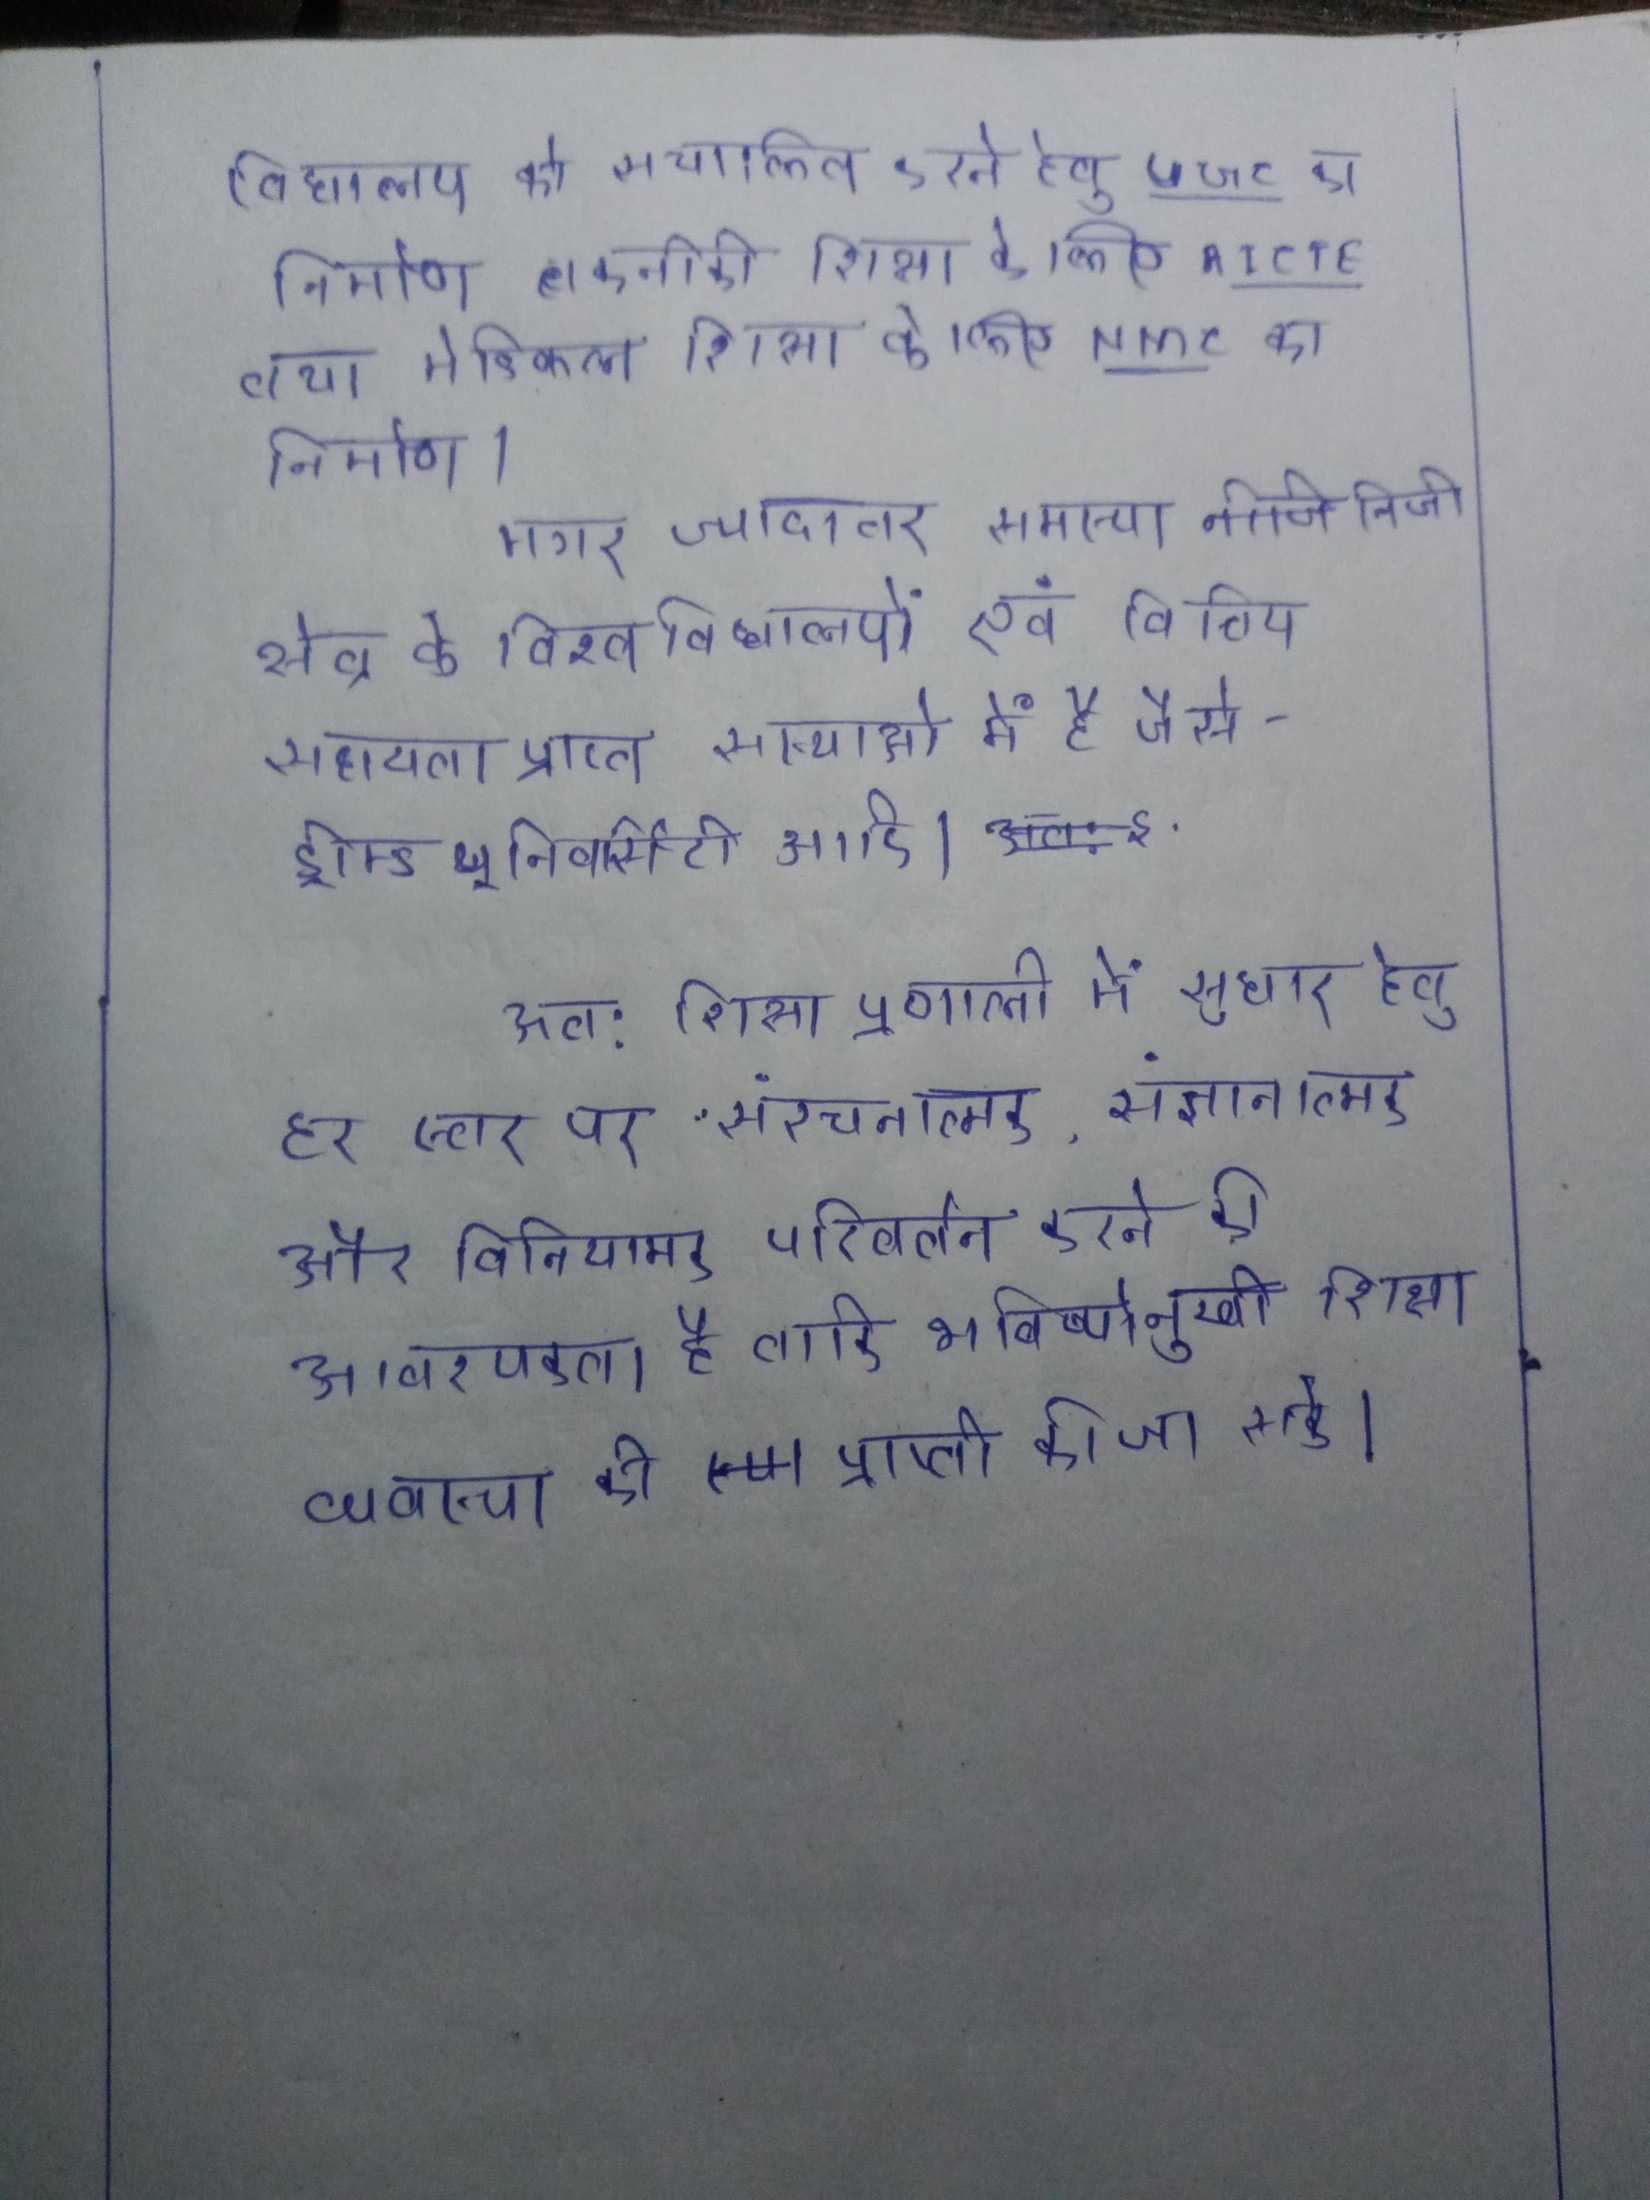 विद्यालय को सचालित करने हेतु UGC का
निर्माण तकनीकी शिक्षा के लिए AICTE
तथा मेडिकल शिक्षा के लिए NMC का
निर्माण।
मगर ज्यादातर समास्या निजी
क्षेत्र के विश्वविद्यालयों एवं वित्तिय
सहायता प्राप्त सास्थाओ में है जैसे -
डीम्ड यूनिवर्सिटी आदि। अतः
अतः शिक्षा प्रणाली में सुधार हेतु
हर स्तर पर संरचनात्मक, संज्ञानात्मक
और विनियामक परिवर्तन करने की
आवश्यकता है ताकि भविष्योनुखी शिक्षा
व्यवास्था की प्राप्ती की जा सके।